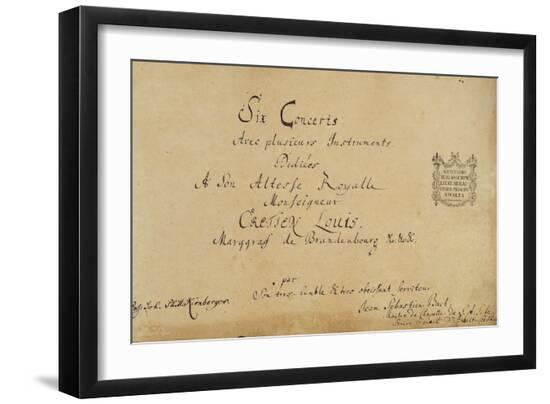 Six Concerts
Avec plusieurs Instruments
Dediées
A Son Altesse Royalle
Monseigneur
CRETIEN LOUIS.
Marggraf de Brandenbourg &c:&c:&c:
par
Son tres-humble & tres obeissant serviteur
Jean Sebastien Bach
Maitre de Chapelle de S. A. S. le
Prince regnant d'Anhalt-Coethen
Kirnberger